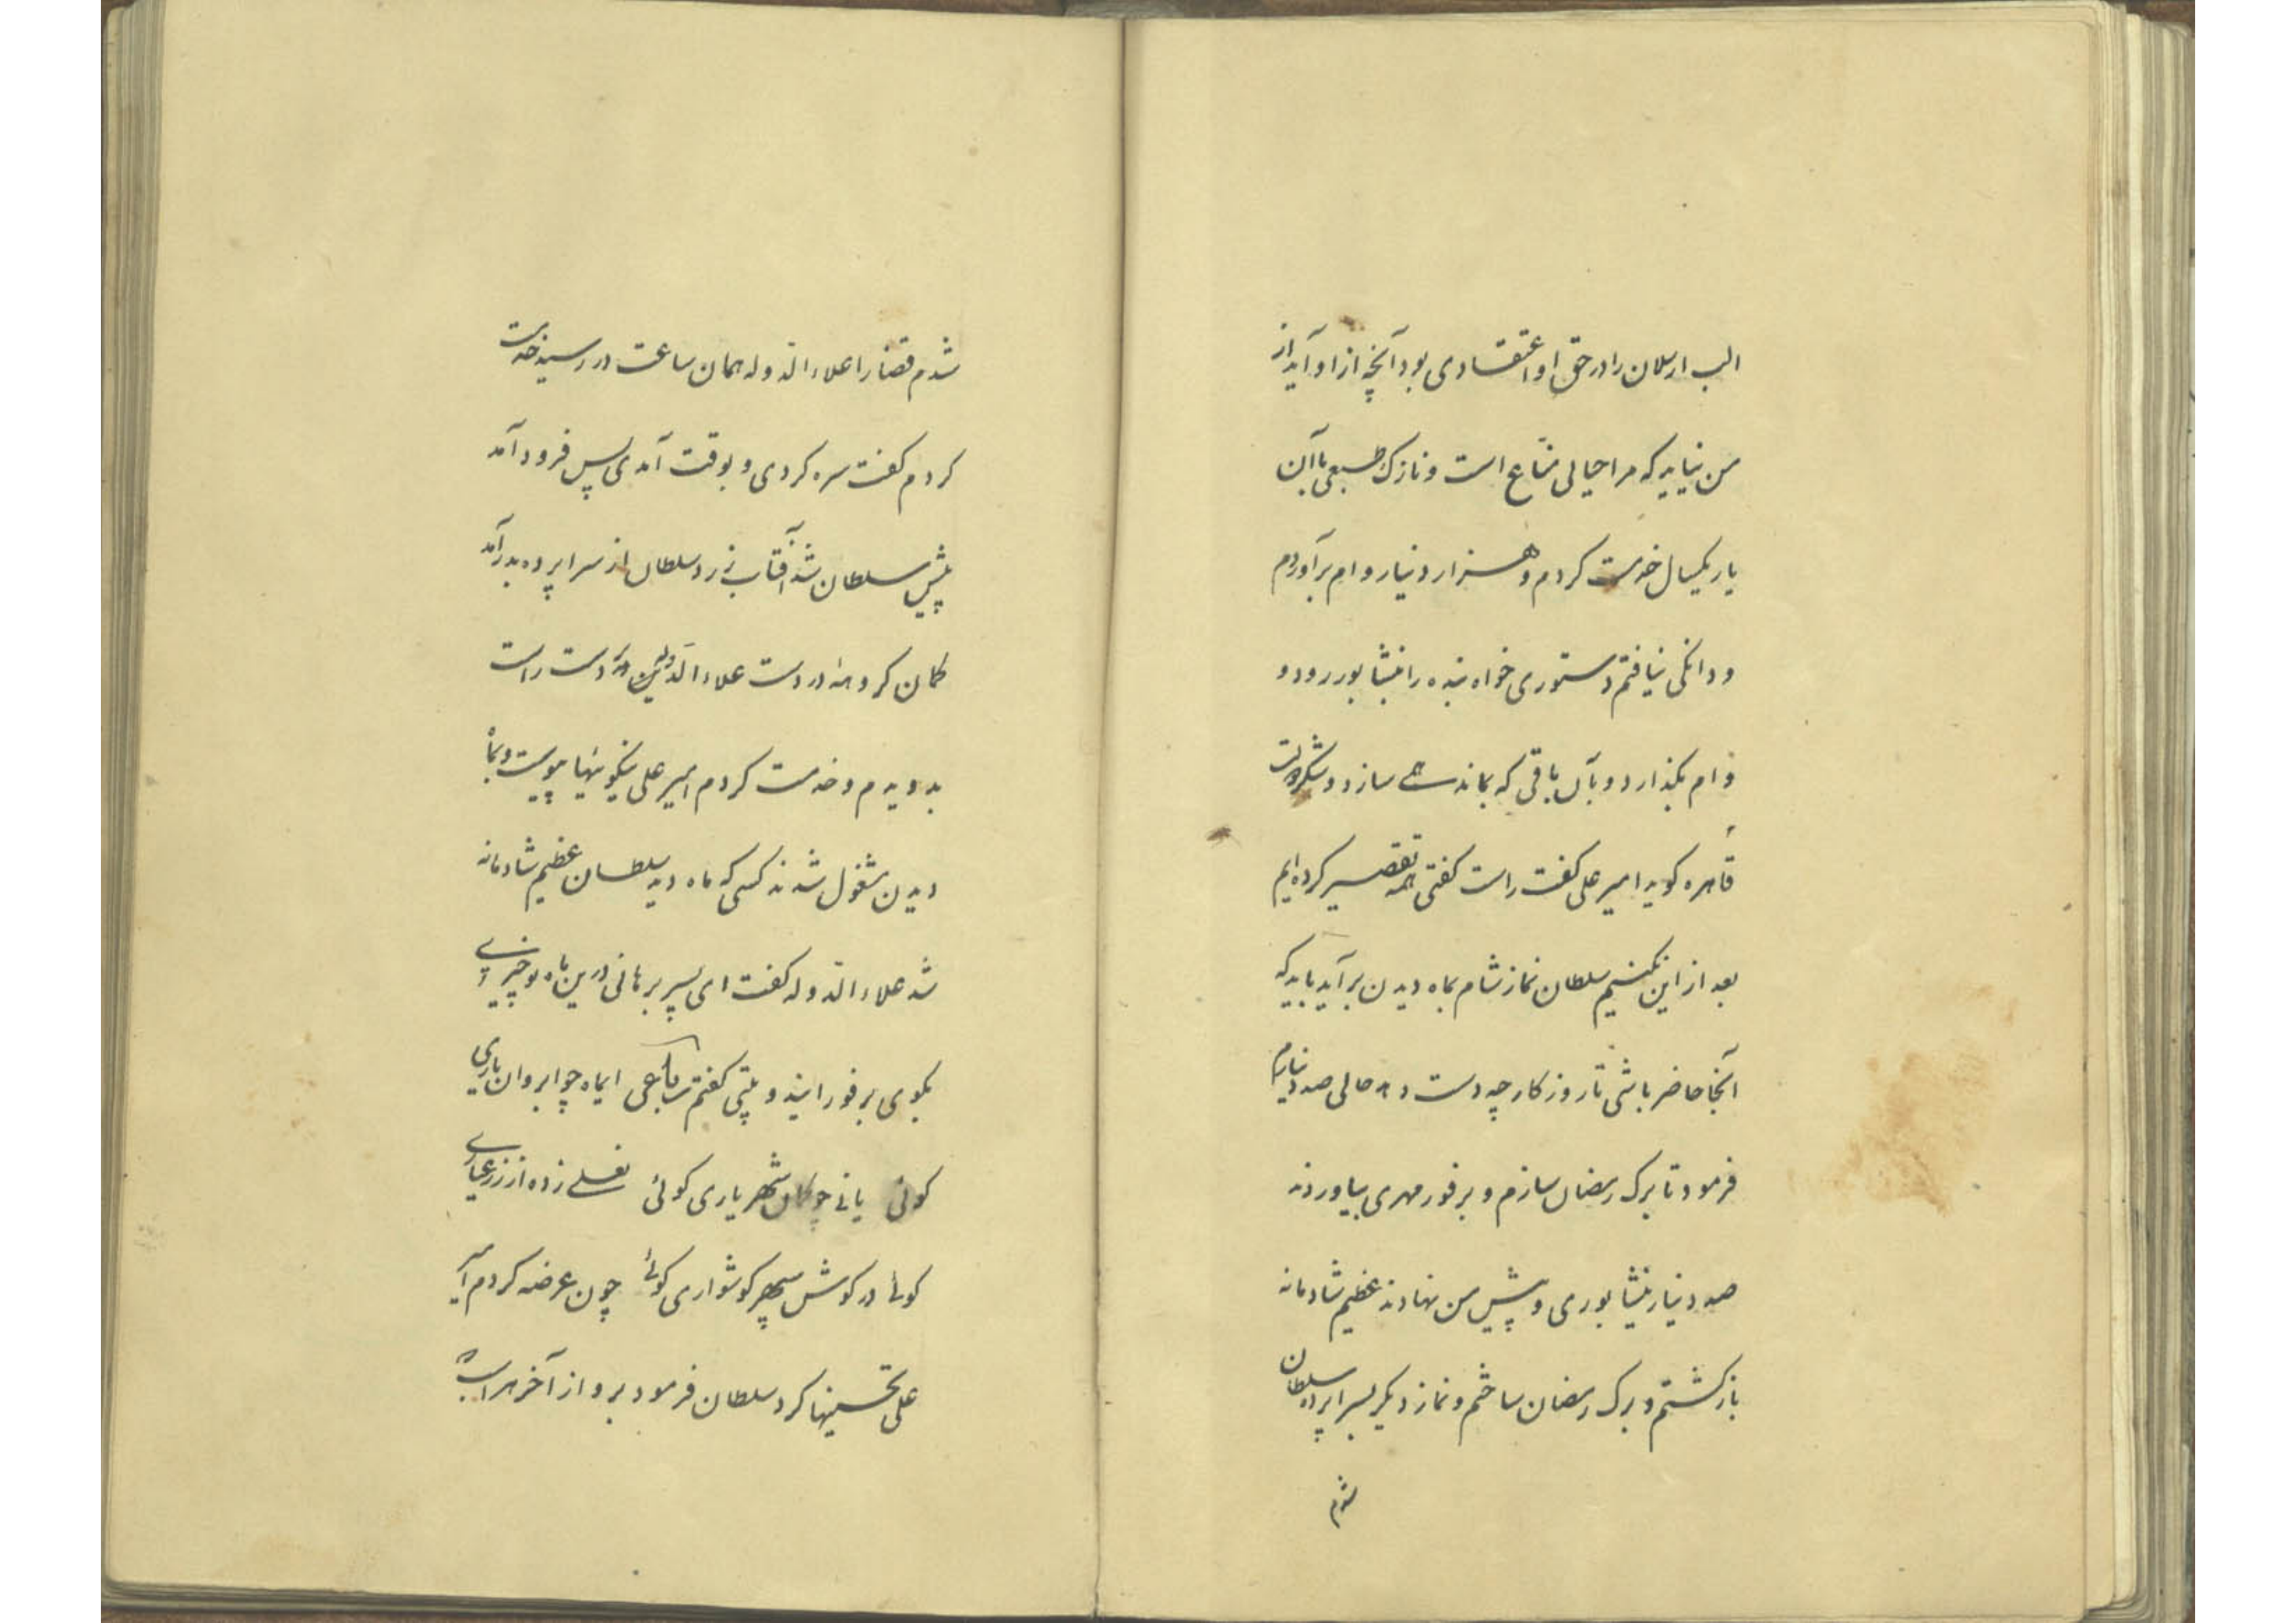 الب ارسلان را در حق او اعتقادی بود آنچه از او آید از
من نیاید که مرا حیائی مناع است و نازک طبعی با آن
یار یکسال خدمت کردم و هزار دینار وام برآوردم
و دانکی نیافتم دستوری خواه بنده را بنشابور رود و
وام بگذارد و بآن باقی که بماند همی سازد و شکر دولت
قاهره کوید امیر علی کفت راست کفتی همه تقصیر کرده‌ایم
بعد از این نکنیم سلطان نماز شام بماه دیدن برآید باید که
آنجا حاضر باشی تا روزکار چه دست دهد حالی صد دینارم
فرمود تا برک رمضان سازم و برفور مهری بیاوردند
صد دینار نیشابوری و پیش من نهادند عظیم شادمانه
بازکشتم و برک رمضان ساختم و نماز دیکر بسراپرده سلطان
شدم
شدم قضا را علاء الدوله همان ساعت در رسید خدمت
کردم کفت سره کردی و بوقت آمدی پس فرود آمد
پیش سلطان شد آفتاب زرد سلطان از سراپرده بدرآمد
کمان کروهه در دست علاء الدوله بر دست راست
بدویدم و خدمت کردم امیر علی نیکوئیها پیوست و بماه
دیدن مشغول شدند کسی که ماه دید سلطان عظیم شادمانه
شد علاء الدوله کفت ای پسر برهانی درین ماه نو چیزی
بکوی برفور این دو بیتی کفتم رباعی ای ماه چو ابروان یاری
کوئی یا نی چو کمان شهریاری کوئی نعلی زده از زر عیاری
کوئی در کوش سپهر کوشواری کوئی چون عرضه کردم امیر
علی تحسینها کرد سلطان فرمود برو از آخر هر اسب